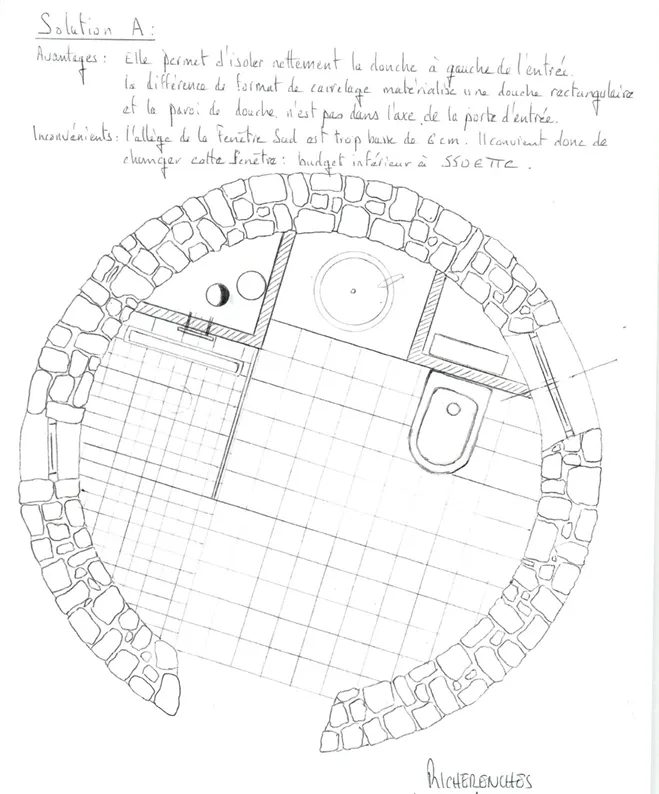 Solution A :
Avantages : Elle permet d'isoler nettement la douche à gauche de l'entrée.
la différence de format de carrelage matérialise une douche rectangulaire
et la paroi de douche n'est pas dans l'axe de la porte d'entrée.
Inconvénients : l'allège de la Fenêtre Sud est trop basse de 6cm. Il convient donc de
changer cette Fenêtre : budget inférieur à 550€ TTC.
RICHERENCHES